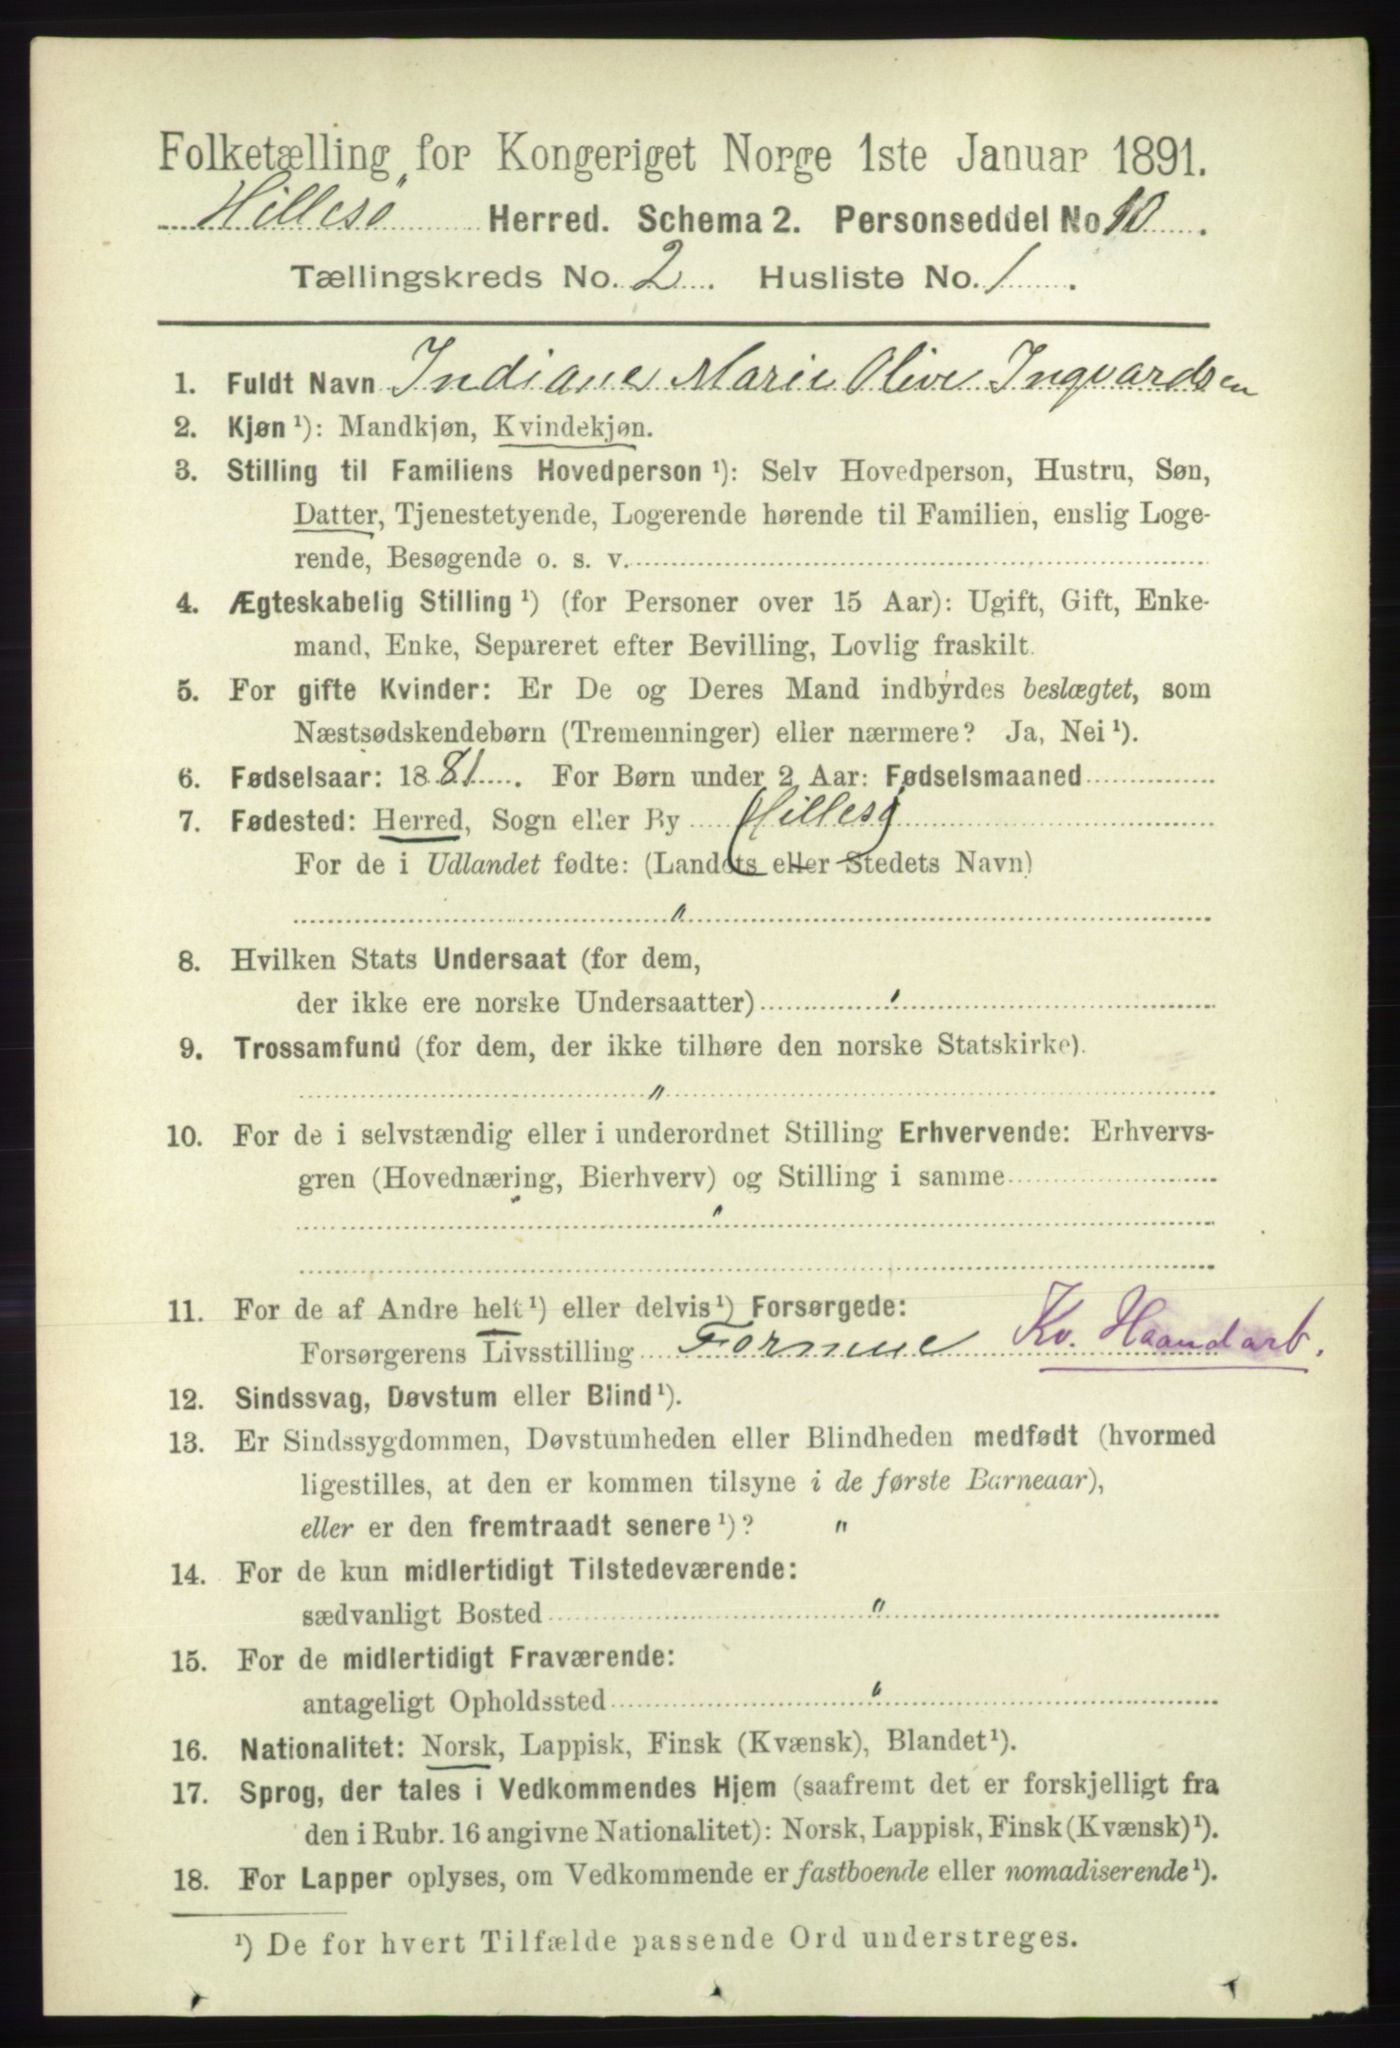 Folketælling for Kongeriget Norge 1ste Januar 1891.
Hillesö Herred. Schema 2. Personseddel No. 10.
Tællingskreds No. 2. Husliste No. 1.
1. Fuldt Navn Indiane Marie Olive Ingvardsen
2. Kjøn ¹): Mandkjøn, Kvindekjøn.
3. Stilling til Familiens Hovedperson ¹): Selv Hovedperson, Hustru, Søn,
Datter, Tjenestetyende, Logerende hørende til Familien, enslig Loge-
rende, Besøgende o. s. v.
4. Ægteskabelig Stilling ¹) (for Personer over 15 Aar): Ugift, Gift, Enke-
mand, Enke, Separeret efter Bevilling, Lovlig fraskilt.
5. For gifte Kvinder: Er De og Deres Mand indbyrdes beslægtet, som
Næstsødskendebørn (Tremenninger) eller nærmere? Ja, Nei ¹).
6. Fødselsaar: 1881. For Børn under 2 Aar: Fødselsmaaned
7. Fødested: Herred, Sogn eller By Hillesø
For de i Udlandet fødte: (Landets eller Stedets Navn)
"
8. Hvilken Stats Undersaat (for dem,
der ikke ere norske Undersaatter) "
9. Trossamfund (for dem, der ikke tilhøre den norske Statskirke).
"
10. For de i selvstændig eller i underordnet Stilling Erhvervende: Erhvervs-
gren (Hovednæring, Bierhverv) og Stilling i samme
"
11. For de af Andre helt ¹) eller delvis ¹) Forsørgede:
Forsørgerens Livsstilling Formue Kv. Haandarb.
12. Sindssvag, Døvstum eller Blind ¹).
13. Er Sindssygdommen, Døvstumheden eller Blindheden medfødt (hvormed
ligestilles, at den er kommen tilsyne i de første Barneaar),
eller er den fremtraadt senere ¹)? "
14. For de kun midlertidigt Tilstedeværende:
sædvanligt Bosted "
15. For de midlertidigt Fraværende:
antageligt Opholdssted "
16. Nationalitet: Norsk, Lappisk, Finsk (Kvænsk), Blandet ¹).
17. Sprog, der tales i Vedkommendes Hjem (saafremt det er forskjelligt fra
den i Rubr. 16 angivne Nationalitet): Norsk, Lappisk, Finsk (Kvænsk) ¹).
18. For Lapper oplyses, om Vedkommende er fastboende eller nomadiserende ¹).
¹) De for hvert Tilfælde passende Ord understreges.